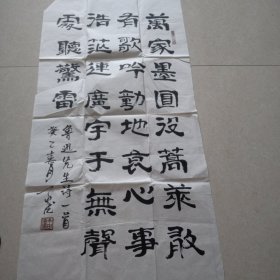 萬家墨面没蒿萊敢
有歌吟動地哀心事
浩茫連廣宇于無聲
處聽驚雷
魯迅先生詩一首